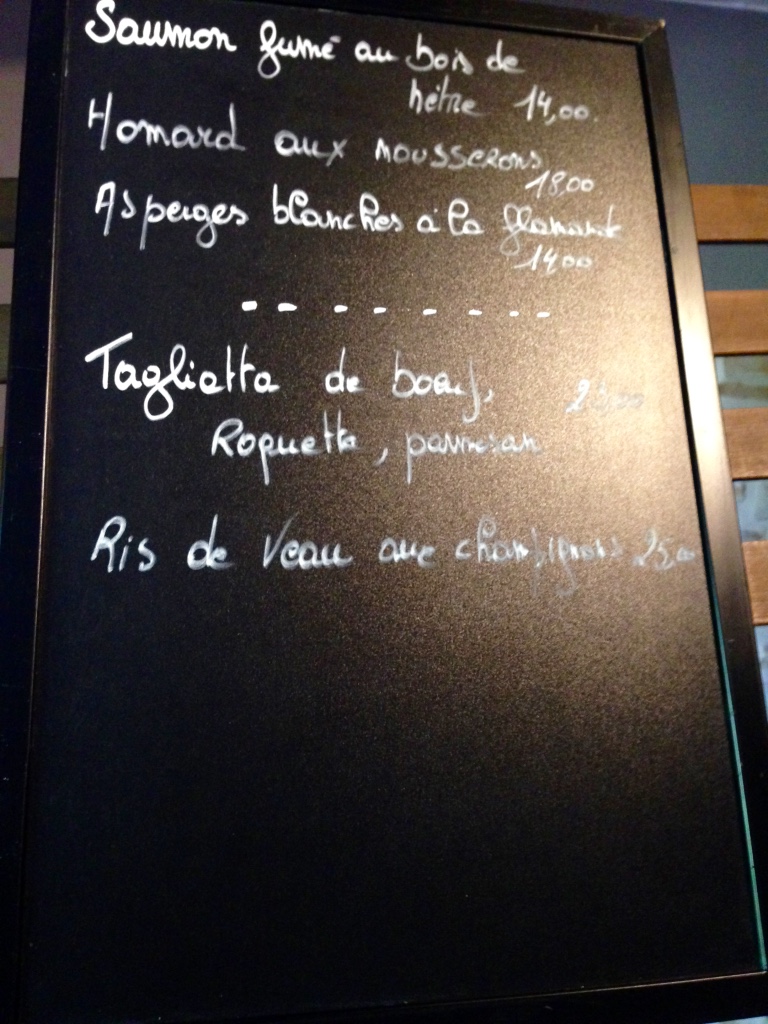 Saumon fumé au bois de
hêtre 14,00
Homard aux mousserons
18,00
Asperges blanches à la flamande
14,00
Tagliatta de boeuf,
Roquette, parmesan
Ris de Veau aux champignons 25,00